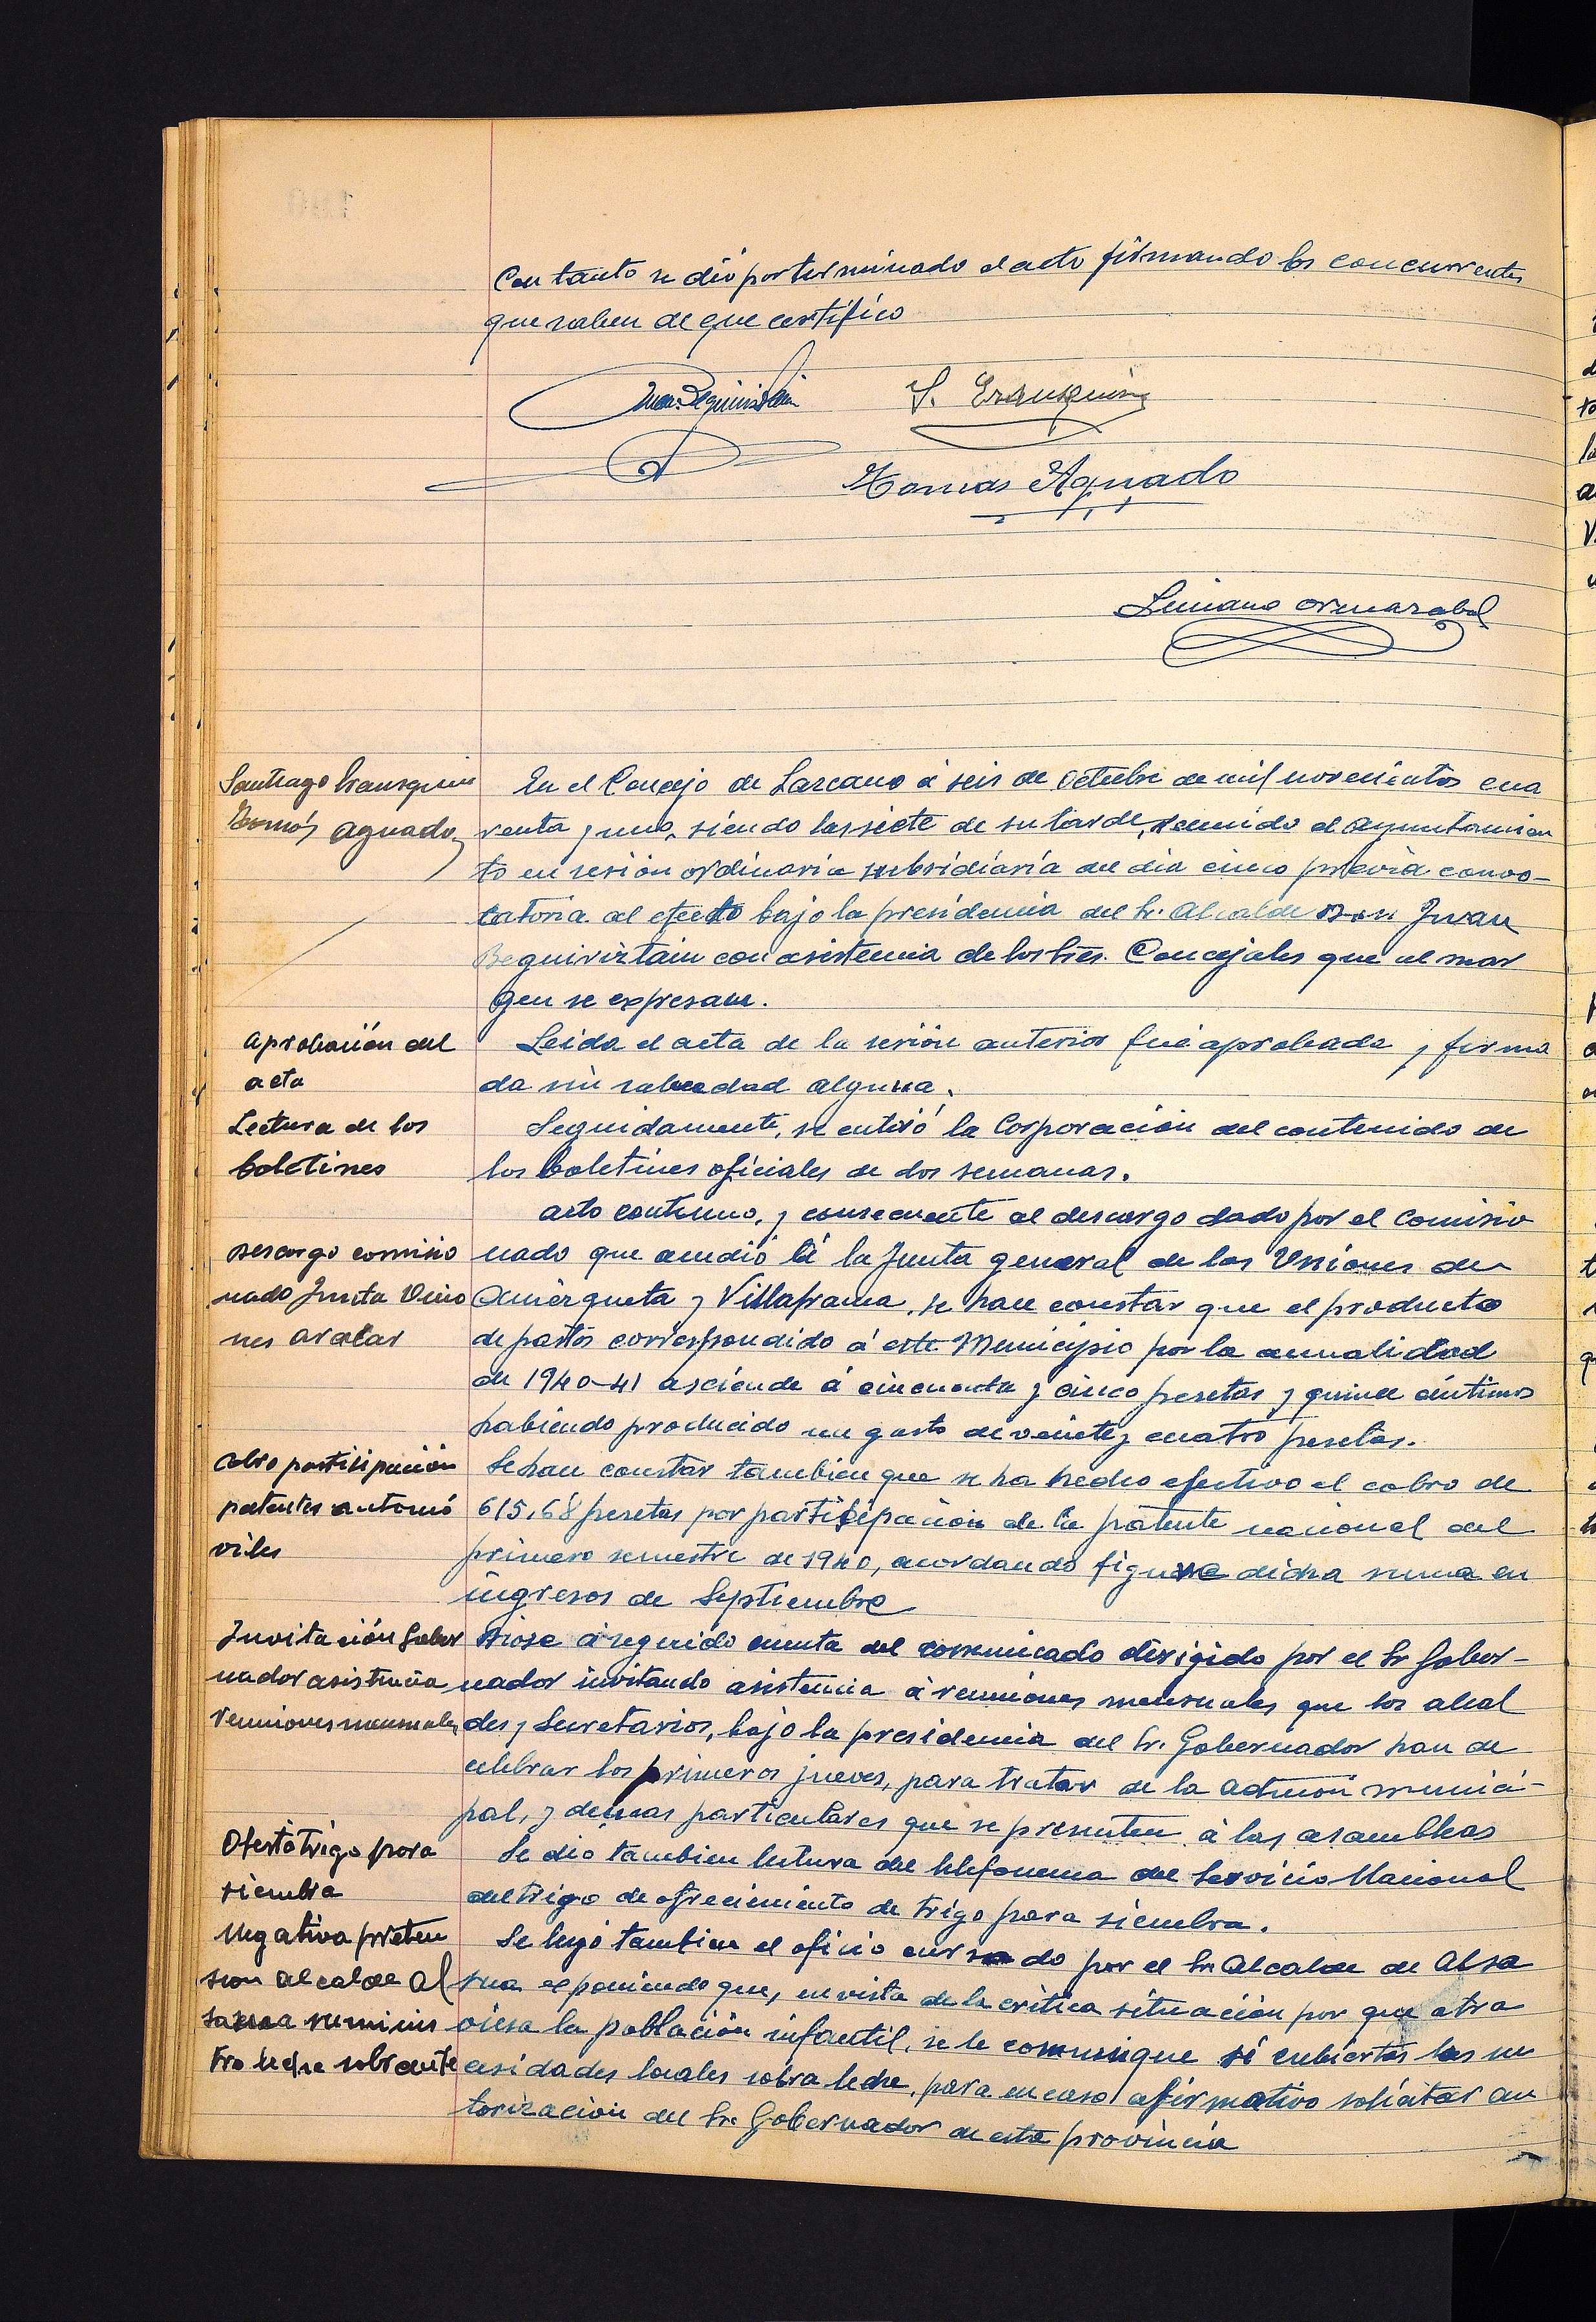 Con tanto se dió por terminado el acto firmando los concurrentes
que saben de que certifico
Juan Beguiristain
S. Eransquin
Tomas Aguado
Luciano Ormazabal
Santiago Eransquin
Tomás Aguado
En el Concejo de Lazcano á seis de Octubre de mil novecientos cua
renta y uno, siendo las siete de su tarde, reunido el Ayuntamien
to en sesión ordinaria subsidiaria del dia cinco previa convo-
catoria al efecto bajo la presidencia del Sr. Alcalde Don Juan
Beguiriztain con asistencia de los Sres. Concejales que al mar
gen se expresan.
Aprobación del
acta
Leida el acta de la sesión anterior fué aprobada y firma
da sin salvedad alguna.
Lectura de los
boletines
Seguidamente, se enteró la Corporación del contenido de
los boletines oficiales de dos semanas.
Descargo comisio
nado Junta Unio
nes Aralar
Acto continuo, y consecuente al descargo dado por el comisio
nado que acudió á la Junta general de las Uniones de
Amézqueta y Villafranca, se hace constar que el producto
de pastos correspondido á este Municipio por la anualidad
de 1940-41 asciende á cincuenta y cinco pesetas y quince céntimos
habiendo producido un gasto de veinte y cuatro pesetas.
Cobro participación
patentes automó
viles
Se hace constar tambien que se ha hecho efectivo el cobro de
615,68 pesetas por participación de la patente nacional del
primero semestre de 1940, acordando figure dicha suma en
ingresos de Septiembre
Invitación Gober
nador asistencia
reuniones mensuales
Dióse á seguido cuenta del comunicado dirigido por el Sr Gober-
nador invitando asistencia á reuniones mensuales que los alcal
des y Secretarios, bajo la presidencia del Sr. Gobernador han de
celebrar los primeros jueves, para tratar de la actuón munici-
pal, y demas particulares que se presenten á las asambleas
Oferta trigo para
siembra
Se dió tambien lectura del telefonema del Servicio Nacional
del trigo de ofrecimiento de trigo para siembra.
Negativa preten
sion alcalde Al
sasua suminis
tro leche sobrante
Se leyó tambien el oficio cursado por el Sr Alcalde de Alsa
sua exponiendo que, en vista de la crítica situación por que atra
viesa la población infantil, se le comunique si cubiertas las ne
cesidades locales sobra leche, para en caso afirmativo solicitar au
torización del Sr. Gobernador de esta provincia